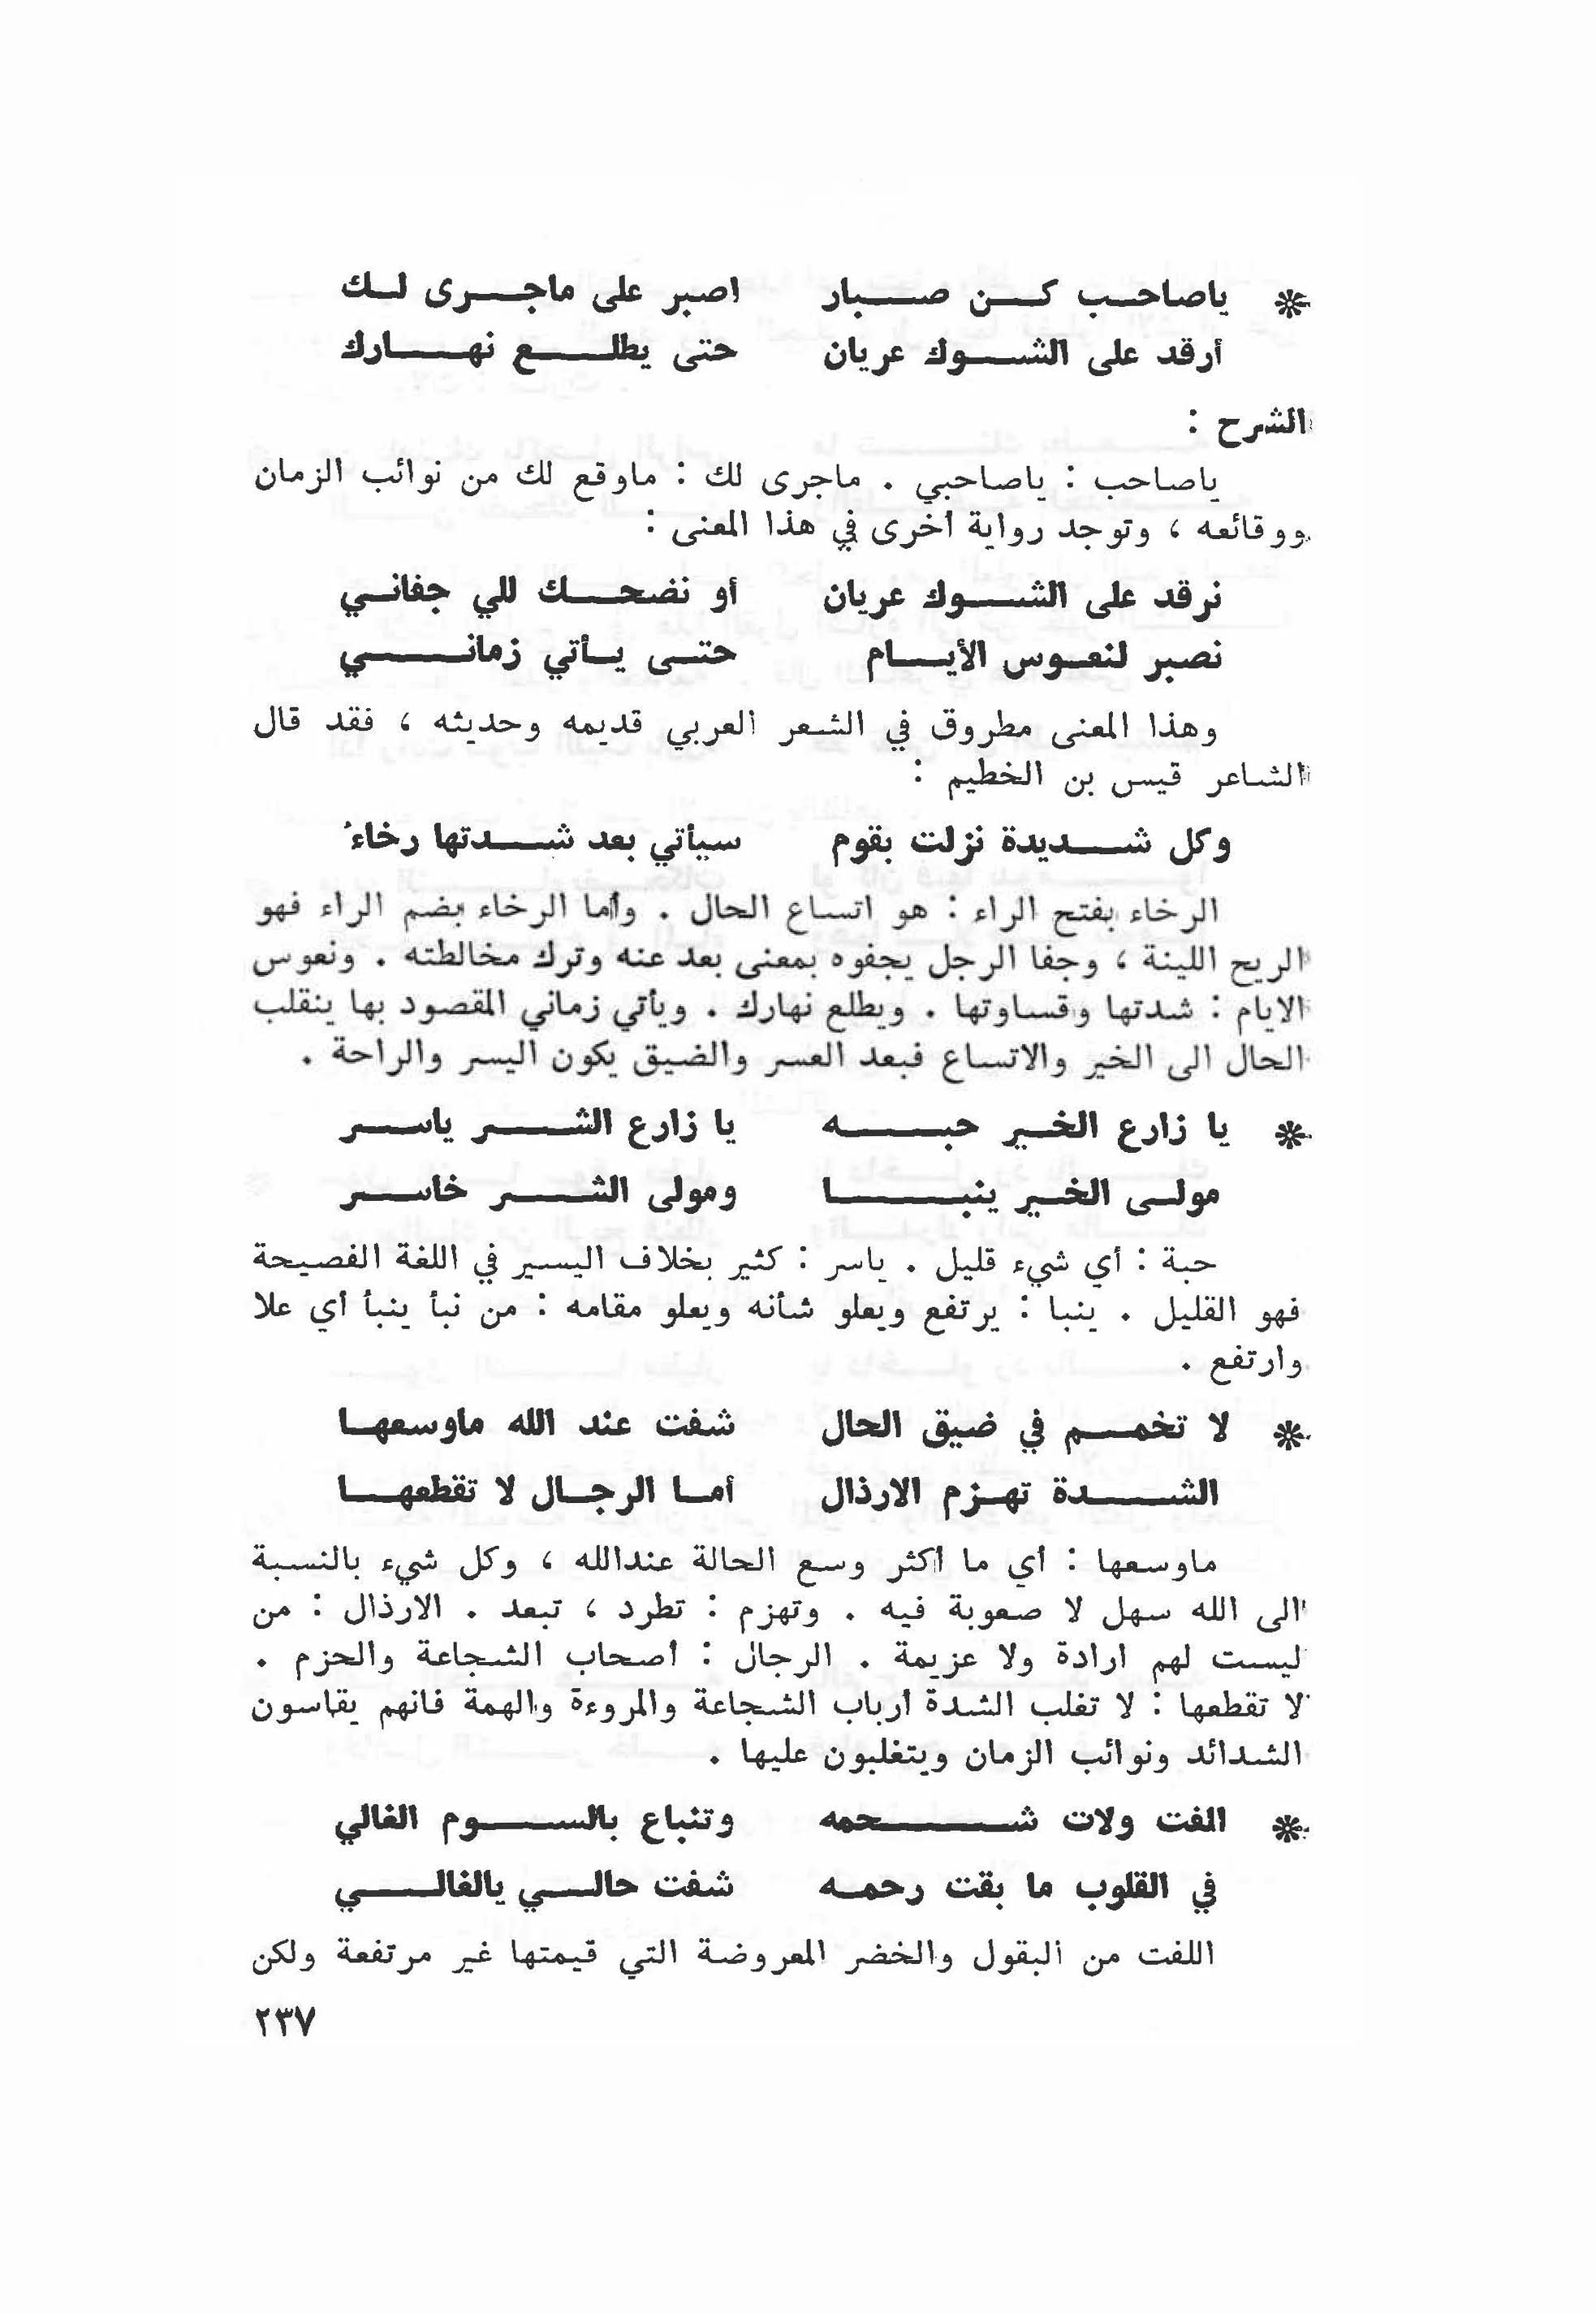 * ياصاحب كن صبار    اصبر على ماجرى لك
أرقد على الشوك عريان    حتى يطلع نهارك
الشرح :
ياصاحب : ياصاحبي . ماجرى لك : ماوقع لك من نوائب الزمان
ووقائعه ، وتوجد رواية أخرى في هذا المعنى :
نرقد على الشوك عريان    أو نضحك للي جفاني
نصبر لنعوس الأيام    حتى يأتي زماني
وهذا المعنى مطروق في الشعر العربي قديمه وحديثه ، فقد قال
الشاعر قيس بن الخطيم :
وكل شديدة نزلت بقوم    سيأتي بعد شدتها رخاءُ
الرخاء بفتح الراء : هو اتساع الحال . وأما الرخاء بضم الراء فهو
الريح اللينة ، وجفا الرجل يجفوه بمعنى بعد عنه وترك مخالطته . ونعوس
الايام : شدتها وقساوتها . ويطلع نهارك . ويأتي زماني المقصود بها ينقلب
الحال الى الخير والاتساع فبعد العسر والضيق يكون اليسر والراحة .
* يا زارع الخير حبه    يا زارع الشر ياسر
مولى الخير ينبا    ومولى الشر خاسر
حبة : أي شيء قليل . ياسر : كثير بخلاف اليسير في اللغة الفصيحة
فهو القليل . ينبا : يرتفع ويعلو شأنه ويعلو مقامه : من نبأ ينبأ أي علا
وارتفع .
* لا تخمم في ضيق الحال    شفت عند الله ماوسعها
الشدة تهزم الارذال    أما الرجال لا تقطعها
ماوسعها : أي ما أكثر وسع الحالة عندالله ، وكل شيء بالنسبة
الى الله سهل لا صعوبة فيه . وتهزم : تطرد ، تبعد . الارذال : من
ليست لهم ارادة ولا عزيمة . الرجال : أصحاب الشجاعة والحزم .
لا تقطعها : لا تغلب الشدة أرباب الشجاعة والمروءة والهمة فانهم يقاسون
الشدائد ونوائب الزمان ويتغلبون عليها .
* الفت ولات شحمه    وتنباع بالسوم الغالي
في القلوب ما بقت رحمه    شفت حالي يالغالي
اللفت من البقول والخضر المعروضة التي قيمتها غير مرتفعة ولكن
٢٣٧